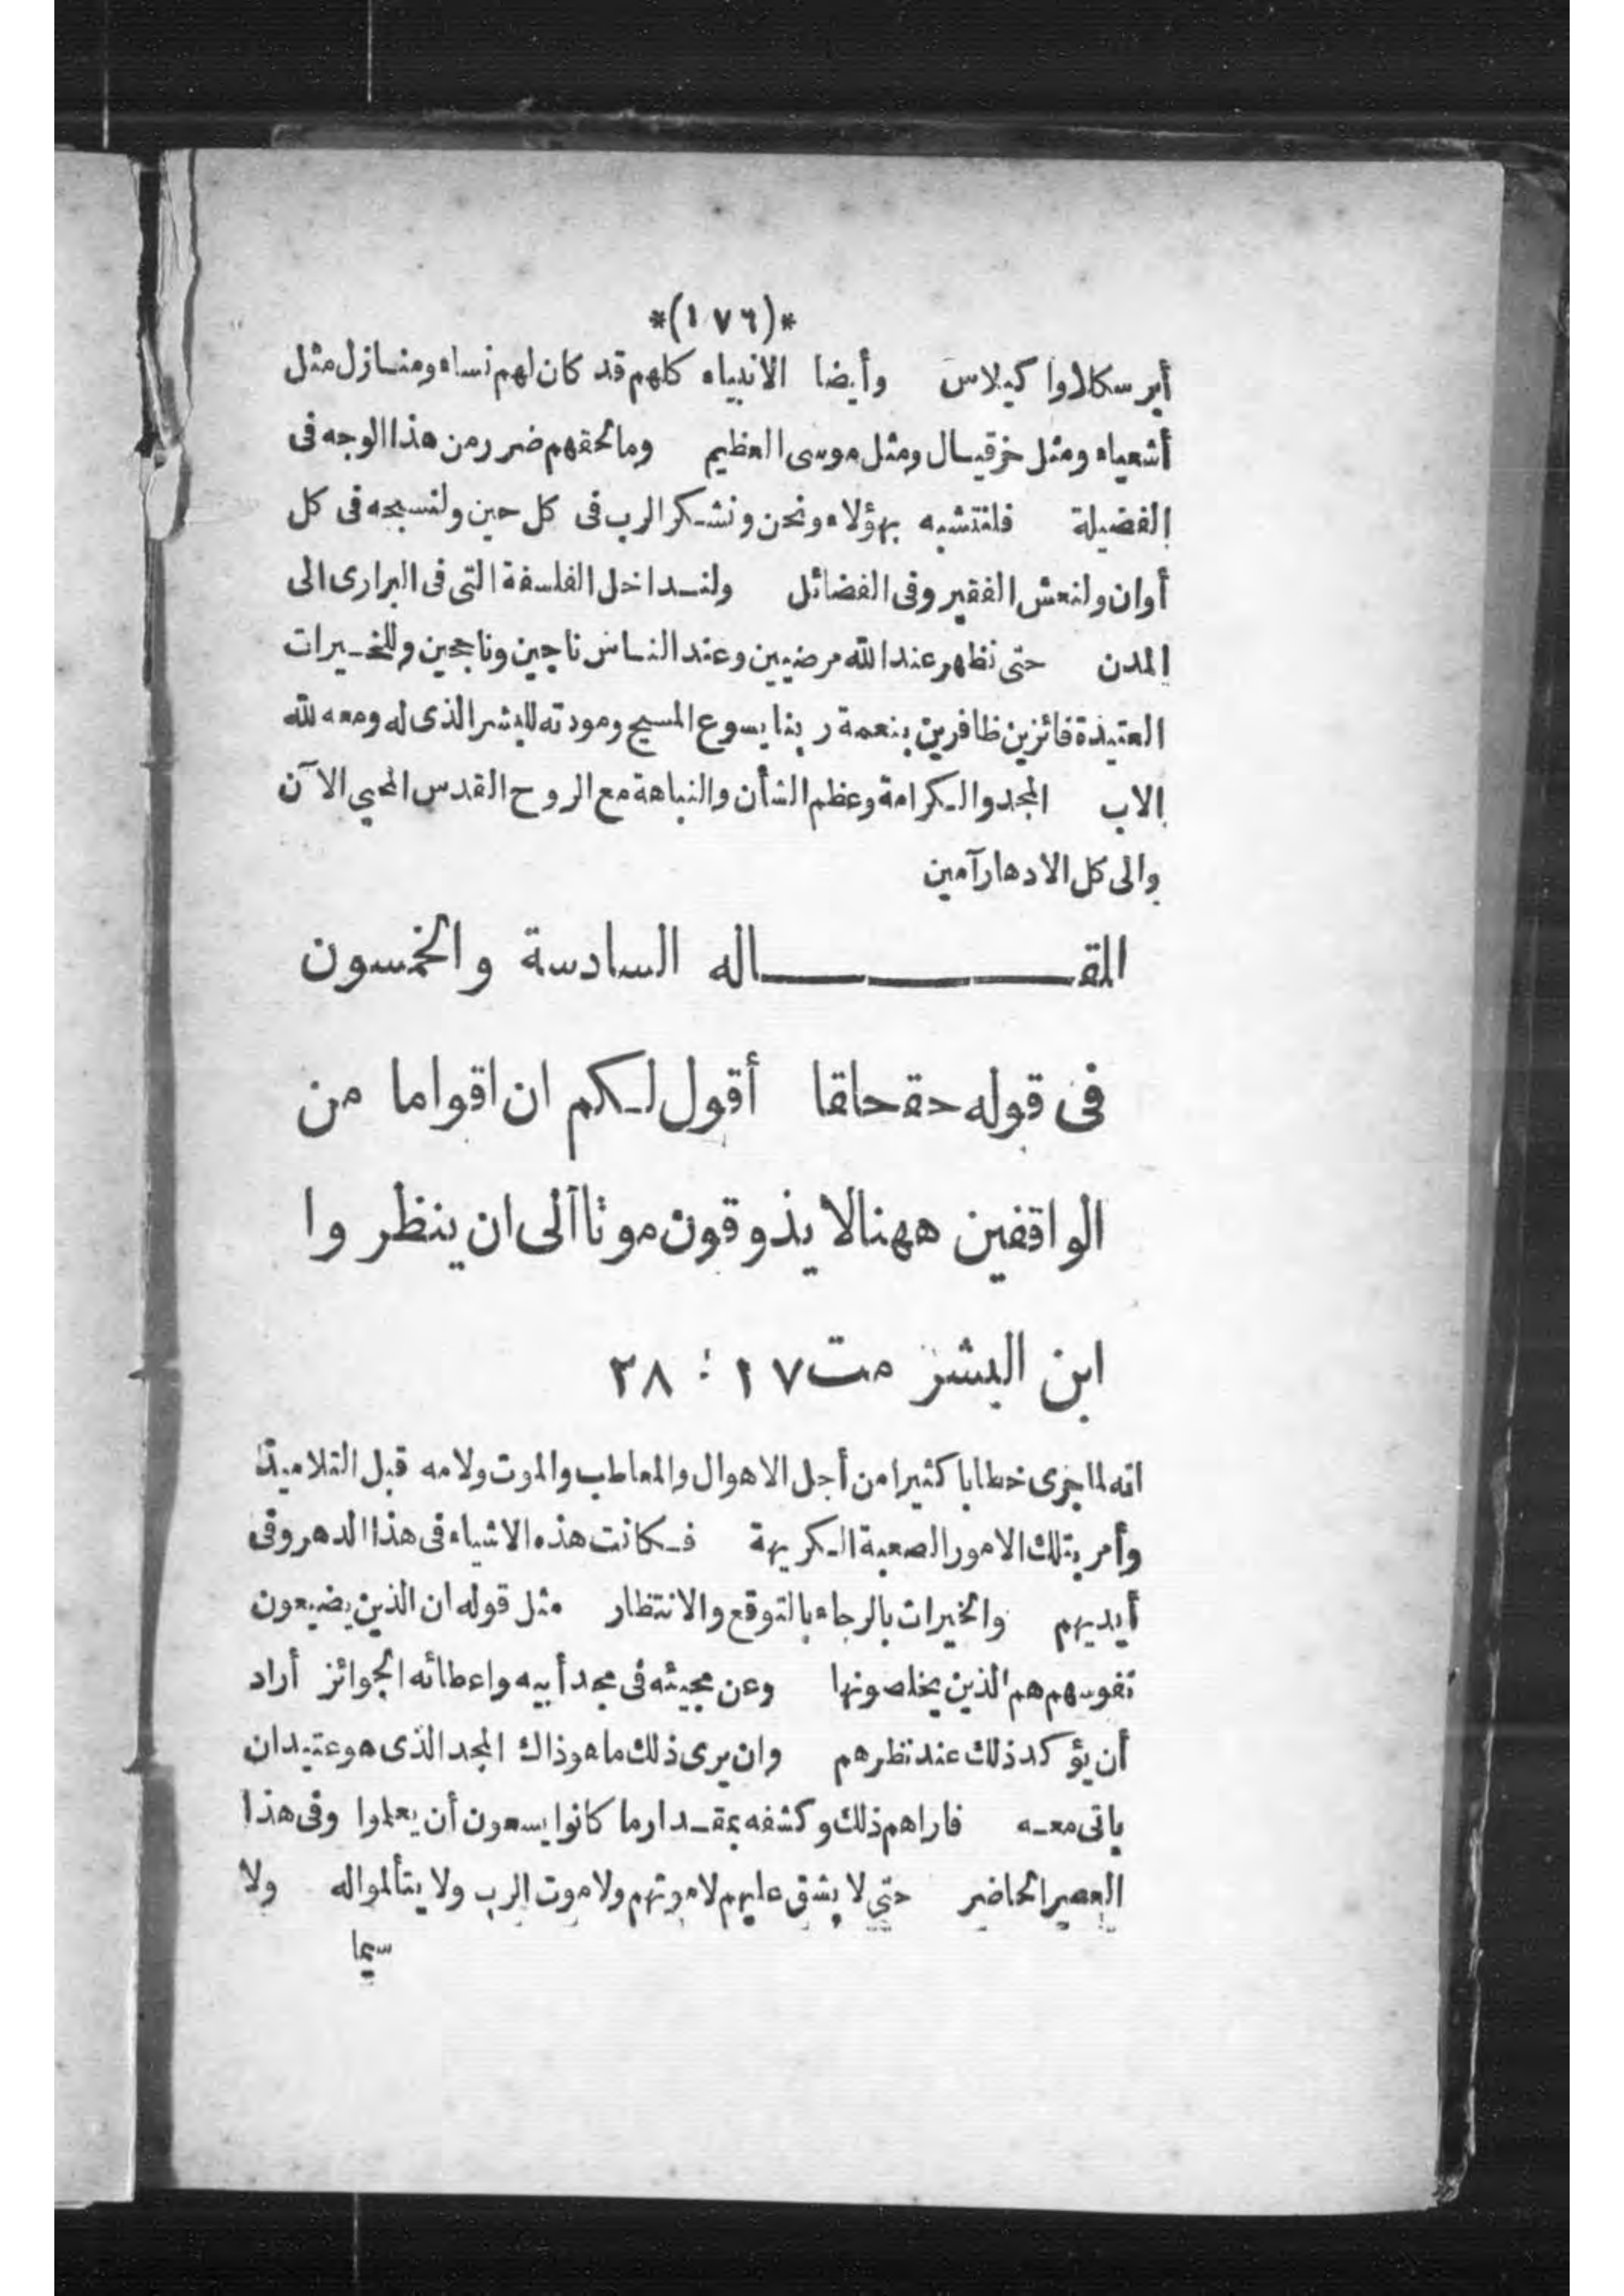 *(١٧٦)*
أبرسكلاوا كيلاس وأيضا الانبياء كلهم قد كان لهم نساء ومنازل مثل
أشعياء ومثل حزقيال ومثل موسى العظيم وما لحقهم ضرر من هذا الوجه فى
الفضيلة فلنتشبه بهؤلاء ونحن ونشكر الرب فى كل حين ولنسبحه فى كل
أوان ولنعش الفقير وفى الفضائل ولنداخل الفلسفة التى فى البرارى الى
المدن حتى نظهر عند الله مرضيين وعند الناس ناجين وناجحين وللخيرات
العتيدة فائزين ظافرين بنعمة ربنا يسوع المسيح ومودته للبشر الذى له ومعه لله
الاب المجد والكرامة وعظم الشأن والنباهة مع الروح القدس المحيي الآن
والى كل الادهار آمين
المقاله السادسة والخمسون
فى قوله حقاحقا أقول لكم ان اقواما من
الواقفين ههنا لا يذوقون موتا الى ان ينظروا
ابن البشر مت ١٧ : ٢٨
انه لما جرى خطابا كثيرا من أجل الاهوال والمعاطب والموت ولامه قبل التلاميذ
وأمر بتلك الامور الصعبة الكريهة فكانت هذه الاشياء فى هذا الدهر وفى
أيديهم والخيرات بالرجاء بالتوقع والانتظار مثل قوله ان الذين يضيعون
نفوسهم هم الذين يخلصونها وعن مجيئه فى مجد أبيه واعطائه الجوائز أراد
أن يؤكد ذلك عند نظرهم وان يرى ذلك ما هو ذاك المجد الذى هو عتيد ان
ياتى معه فاراهم ذلك وكشفه بمقدار ما كانوا يسعون أن يعلموا وفى هذا
العصر الحاضر حتى لا يشق عليهم لا موتهم ولا موت الرب ولا يتألموا له ولا
سيما